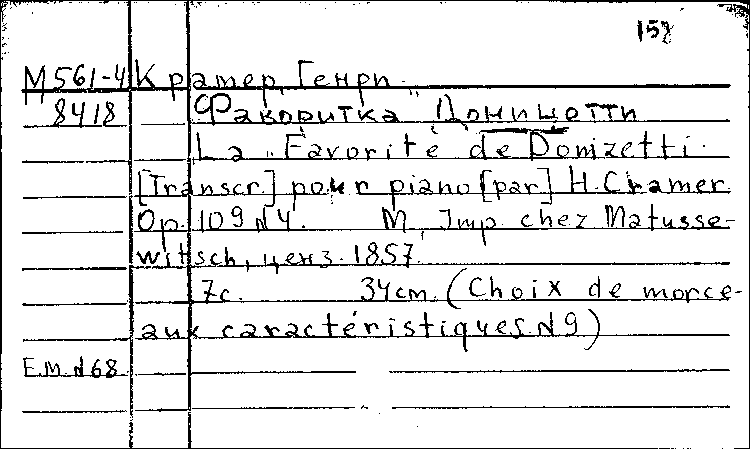 158
М561-4 Крамер, Генри.
8418 "Фаворитка" Доницетти
La "Favorite" de Donizetti.
[Transcr.] pour piano [par] H. Cramer
Op. 109 N4. М., Imp. chez Matusse-
witsch, ценз. 1857.
7с. 34см. (Choix de morce-
aux caractéristiques. N9)
Е.М. N68